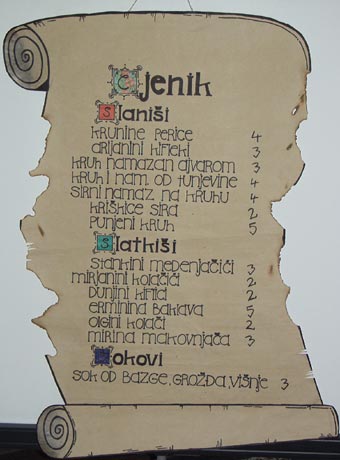 Cjenik
Slaniši
krunine perice 4
arijanini kifleki 3
kruh namazan ajvarom 3
kruh i nam. od tunjevine 4
sirni namaz na kruhu 4
kriškice sira 2
punjeni kruh 5
Slatkiši
stankini medenjačići 3
mirjanini kolačići 2
dunjini kiflia 2
erminina baklava 5
olgini kolači 2
mirina makovnjača 3
Sokovi
sok od bazge, grožđa, višnje 3